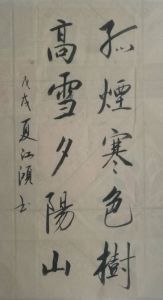 孤煙寒色樹
高雪夕陽山
戊戌夏江灝书